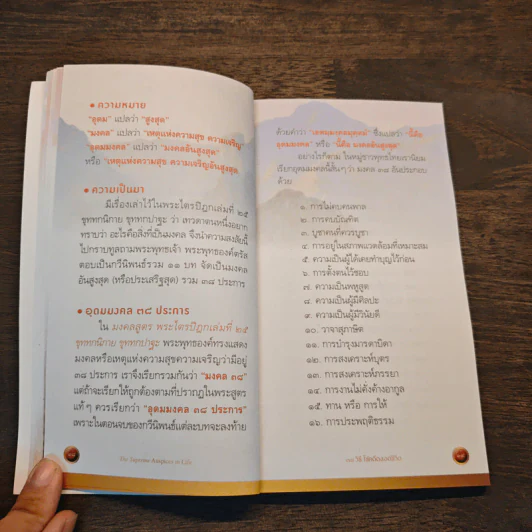 • ความหมาย
"อุดม" แปลว่า "สูงสุด"
"มงคล" แปลว่า "เหตุแห่งความสุข ความเจริญ"
"อุดมมงคล" แปลว่า "มงคลอันสูงสุด"
หรือ "เหตุแห่งความสุข ความเจริญอันสูงสุด"
• ความเป็นมา
มีเรื่องเล่าไว้ในพระไตรปิฎกเล่มที่ ๒๕
ขุททกนิกาย ขุททกปาฐะ ว่า เทวดาตนหนึ่งอยาก
ทราบว่า อะไรคือสิ่งที่เป็นมงคล จึงนำความสงสัยนี้
ไปกราบทูลถามพระพุทธเจ้า พระพุทธองค์ตรัส
ตอบเป็นกวีนิพนธ์รวม ๑๑ บท จัดเป็นมงคล
อันสูงสุด (หรือประเสริฐสุด) รวม ๓๘ ประการ
• อุดมมงคล ๓๘ ประการ
ใน มงคลสูตร พระไตรปิฎกเล่มที่ ๒๕
ขุททกนิกาย ขุททกปาฐะ พระพุทธองค์ทรงแสดง
มงคลหรือเหตุแห่งความสุขความเจริญว่ามีอยู่
๓๘ ประการ เราจึงเรียกรวมกันว่า "มงคล ๓๘"
แต่ถ้าจะเรียกให้ถูกต้องตามที่ปรากฏในพระสูตร
แท้ๆ ควรเรียกว่า "อุดมมงคล ๓๘ ประการ"
เพราะในตอนจบของกวีนิพนธ์แต่ละบทจะลงท้าย
The Supreme Auspices in Life
ด้วยคำว่า "เอตมฺมงฺคลมุตฺตมํ" ซึ่งแปลว่า "นี้คือ
อุดมมงคล" หรือ "นี้คือ มงคลอันสูงสุด"
อย่างไรก็ตาม ในหมู่ชาวพุทธไทยเรานิยม
เรียกอุดมมงคลนี้สั้นๆ ว่า มงคล ๓๘ อันประกอบ
ด้วย
๑. การไม่คบคนพาล
๒. การคบบัณฑิต
๓. บูชาคนที่ควรบูชา
๔. การอยู่ในสภาพแวดล้อมที่เหมาะสม
๕. ความเป็นผู้ได้เคยทำบุญไว้ก่อน
๖. การตั้งตนไว้ชอบ
๗. ความเป็นพหูสูต
๘. ความเป็นผู้มีศิลปะ
๙. ความเป็นผู้มีวินัยดี
๑๐. วาจาสุภาษิต
๑๑. การบำรุงมารดาบิดา
๑๒. การสงเคราะห์บุตร
๑๓. การสงเคราะห์ภรรยา
๑๔. การงานไม่คั่งค้างอากูล
๑๕. ทาน หรือ การให้
๑๖. การประพฤติธรรม